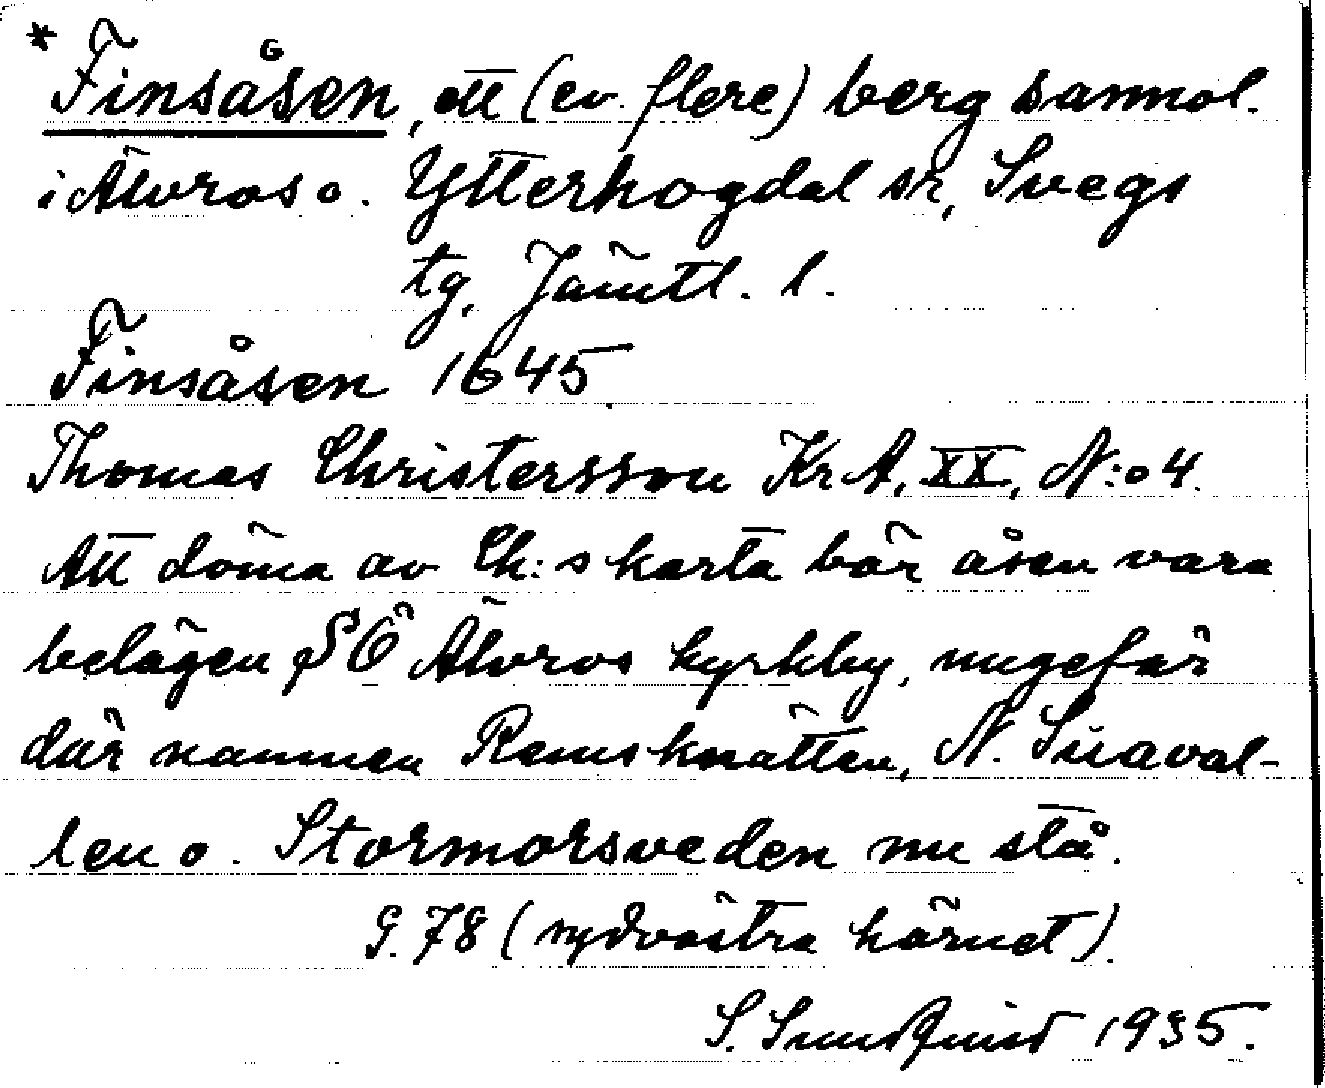 * Finsåsen, ett (ev. flere) berg sannol.
i Älvros o. Ytterhogdal sn, Svegs
tg, Jämtl. l.
Finsåsen 1645.
Thomas Christersson Kr A, XX, N:o 4.
Att döma av Ch:s karta bör åsen vara
belägen SÖ Älvros kyrkby, ungefär
där namnen Remsknätten, N. Suaval-
len o. Stormorsveden nu stå.
G. 78 (sydvästra hörnet).
S. Sundquist 1935.